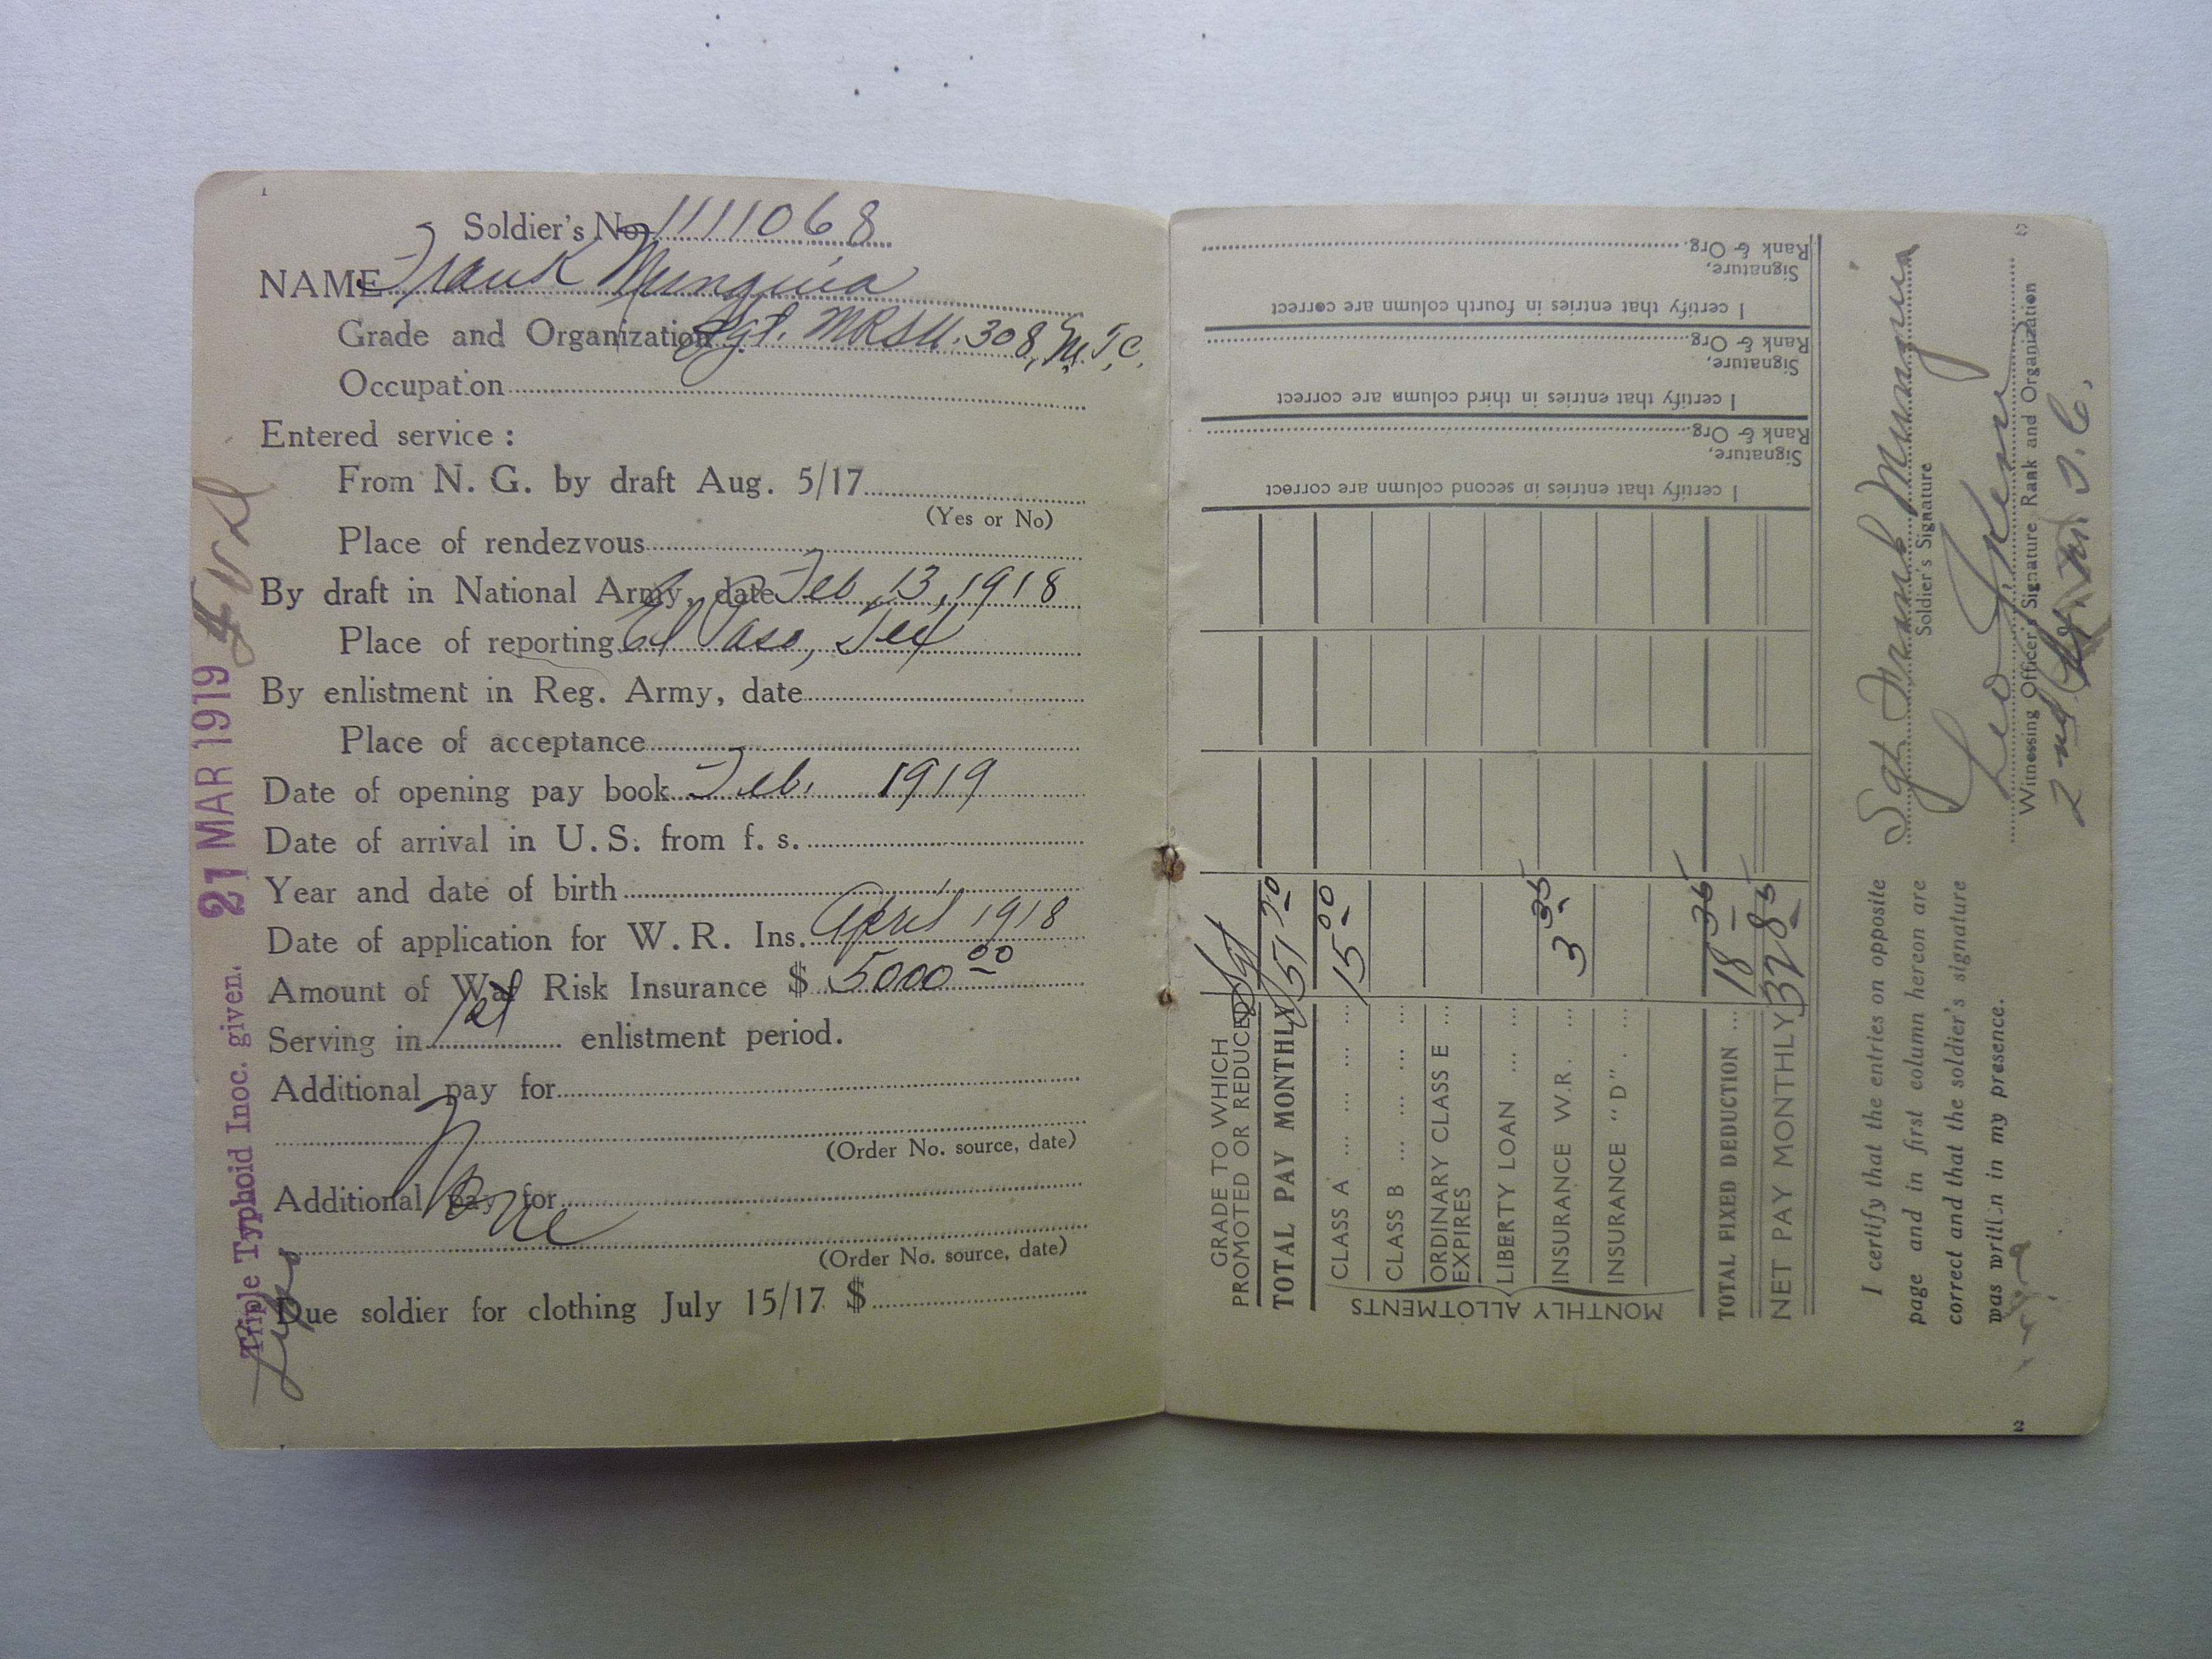 1
Soldier's No. 1111068
NAME Frank Munguia
Grade and Organization Sgt. MRSU. 308, M.T.C.
Occupation
Entered service :
From N. G. by draft Aug. 5/17
(Yes or No)
Place of rendezvous
By draft in National Army, date Feb. 13, 1918
Place of reporting El Paso, Tex
By enlistment in Reg. Army, date
Place of acceptance
Date of opening pay book Feb. 1919
Date of arrival in U. S. from f. s.
Year and date of birth
Date of application for W. R. Ins. April 1918
Amount of War Risk Insurance $ 5000 00
Serving in 1st enlistment period.
Additional pay for
(Order No. source, date)
None
Additional pay for
(Order No. source, date)
Due soldier for clothing July 15/17 $
Triple Typhoid Inoc. given. 21 MAR 1919
GRADE TO WHICH
PROMOTED OR REDUCED Sgt
TOTAL PAY MONTHLY 51 20
MONTHLY ALLOTMENTS
CLASS A 15 00
CLASS B
ORDINARY CLASS E
EXPIRES
LIBERTY LOAN
INSURANCE W.R. 3 35
INSURANCE "D"
TOTAL FIXED DEDUCTION 18 35
NET PAY MONTHLY 32 85
I certify that entries in second column are correct
Signature,
Rank & Org.
I certify that entries in third column are correct
Signature,
Rank & Org.
I certify that entries in fourth column are correct
Signature,
Rank & Org.
I certify that the entries on opposite
page and in first column hereon are
correct and that the soldier's signature
was written in my presence.
Sgt Frank Munguia
Soldier's Signature
Leo
Witnessing Officer's Signature Rank and Organization
2nd Lt.
2